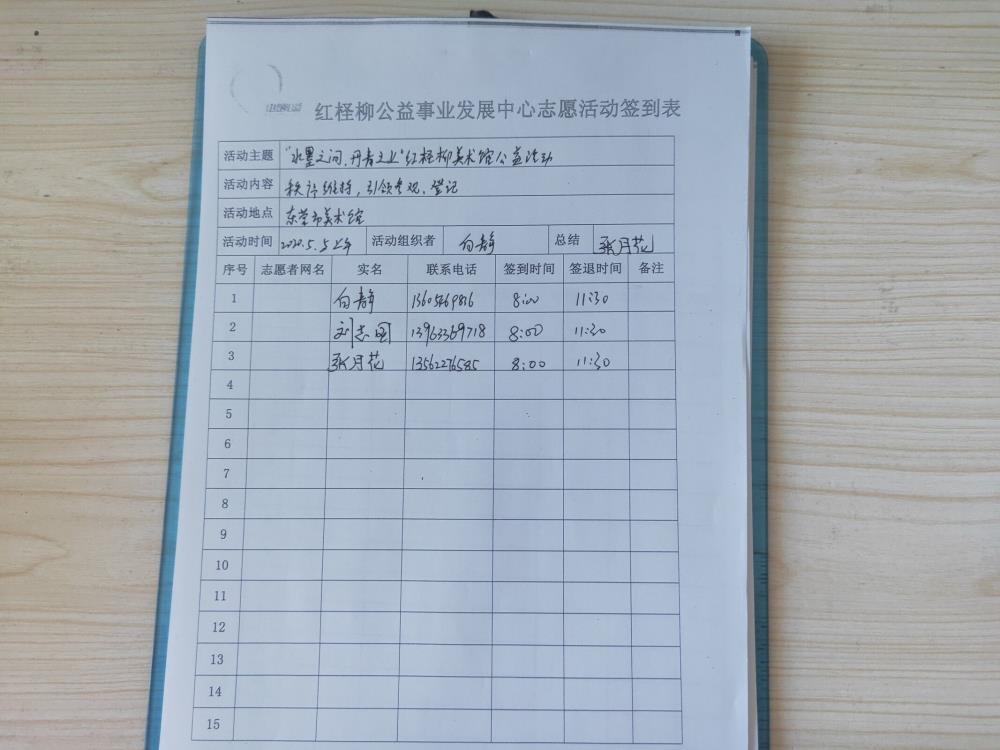 红柽柳公益事业发展中心志愿活动签到表
活动主题 "水墨之间,丹青之上"红柽柳美术馆公益活动
活动内容 秩序维持,引领参观、登记
活动地点 东营市美术馆
活动时间 2020.5.5上午 活动组织者 白静 总结 张月花
序号 志愿者网名 实名 联系电话 签到时间 签退时间 备注
1 白静 13605469816 8:00 11:30
2 刘志国 13963369718 8:00 11:30
3 张月花 13562276585 8:00 11:30
4
5
6
7
8
9
10
11
12
13
14
15